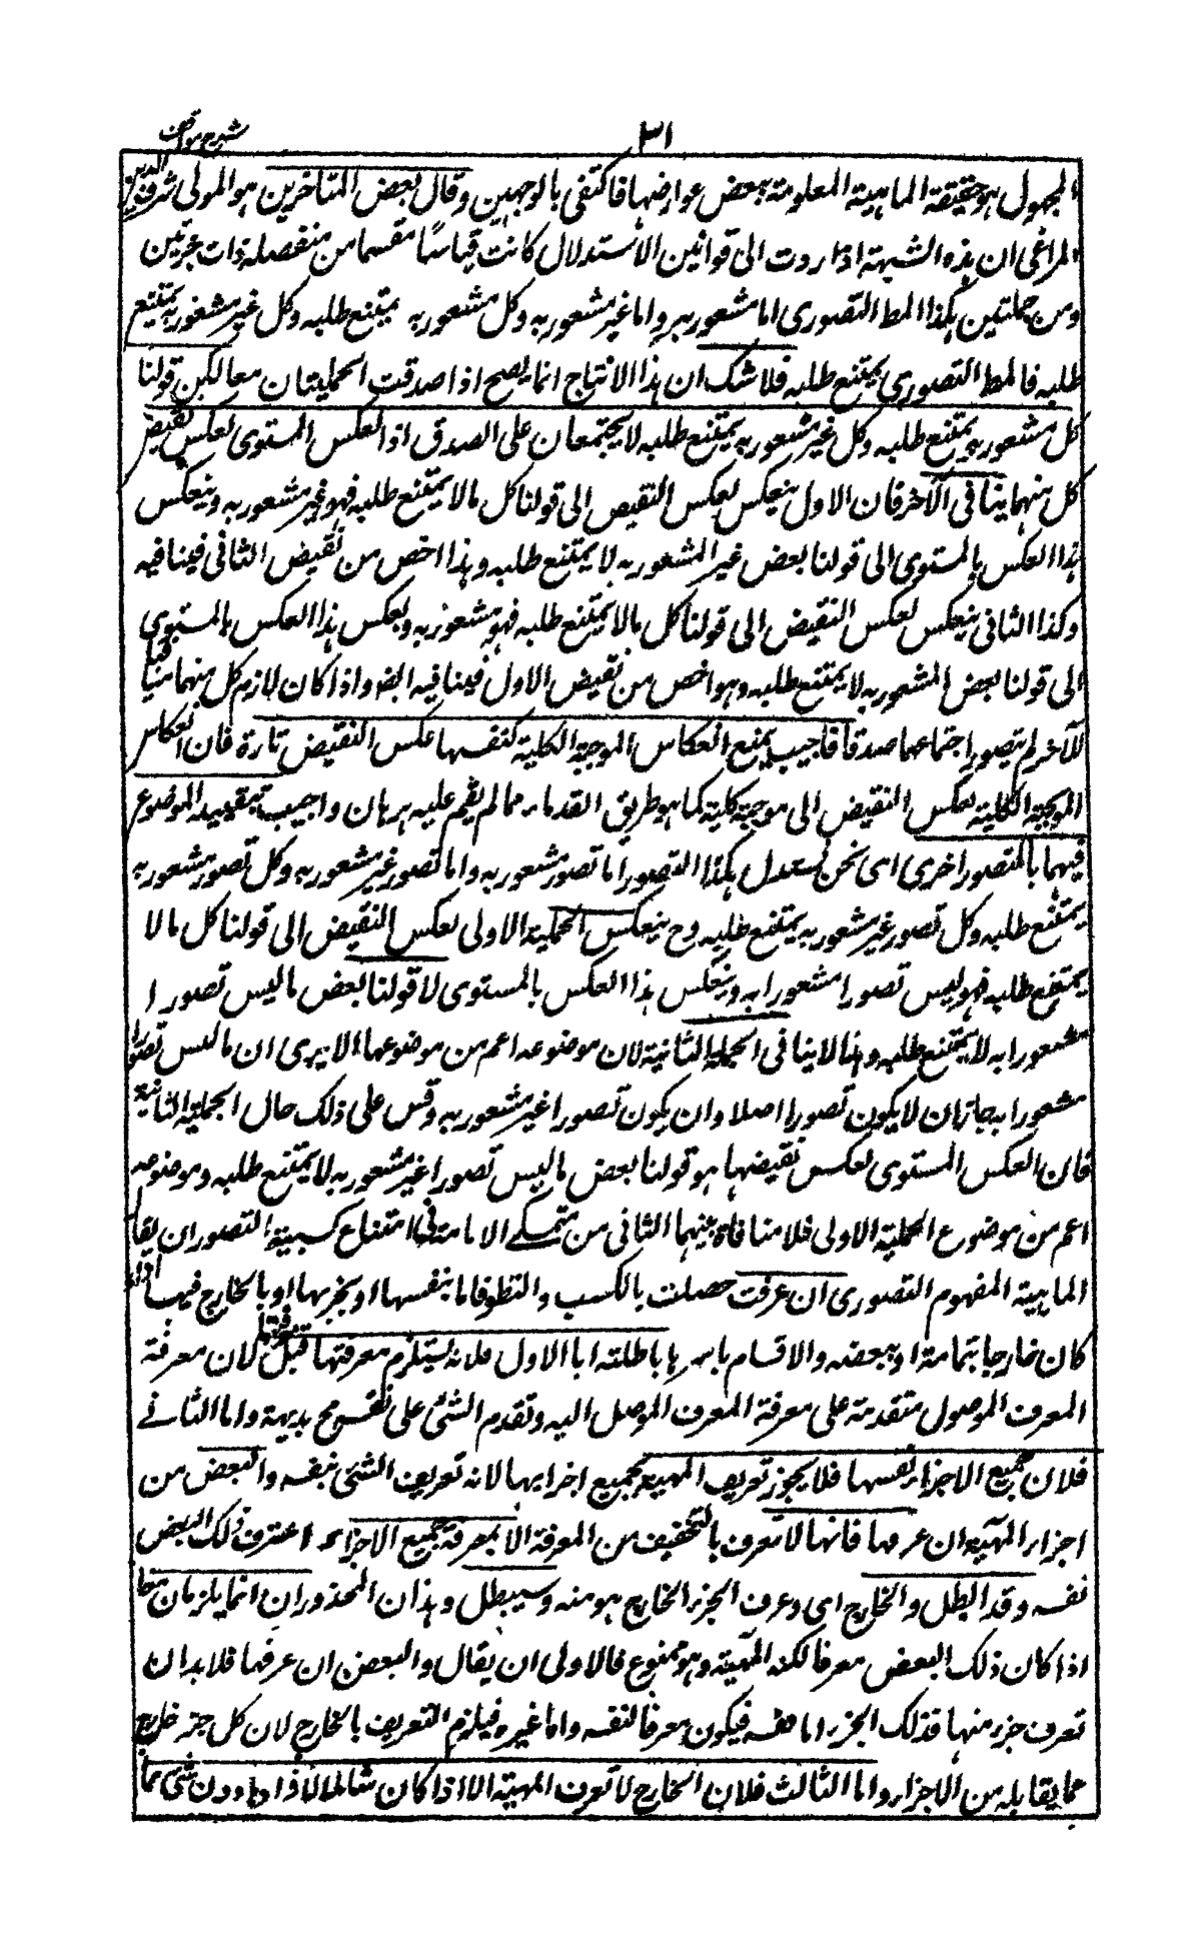 ٣١
شرح مواقف
المجهول ہو حقيقة الماہية المعلومة ببعض عوارضہا فاكتفى بالوجہين وقال بعض المتاخرين ہو المولى شرف الدين
المراغى ان ہذہ الشبہة اذا ردت الى قوانين الاستدلال كانت قياسًا مقسما من منفصلة ذات جزئين
ومن حمليتين ہكذا المط التصورى اما مشعور بہ واما غير مشعور بہ وكل مشعور بہ يمتنع طلبہ وكل غير مشعور بہ يمتنع
طلبہ فالمط التصورى يمتنع طلبہ فلا شك ان ہذا الانتاج انما يصح اذا صدقت الحمليتان معا لكن قولنا
كل مشعور بہ يمتنع طلبہ وكل غير مشعور بہ يمتنع طلبہ لا يجتمعان على الصدق اذ العكس المستوى لعكس نقيض
كل منہما ينافى الآخر فان الاول ينعكس لعكس النقيض الى قولنا كل ما لا يمتنع طلبہ فہو غير مشعور بہ وينعكس
ہذا العكس بالمستوى الى قولنا بعض غير المشعور بہ لا يمتنع طلبہ وہذا اخص من نقيض الثانى فينافيہ
وكذا الثانى ينعكس لعكس النقيض الى قولنا كل ما لا يمتنع طلبہ فہو مشعور بہ ولعكس ہذا العكس بالمستوى
الى قولنا بعض المشعور بہ لا يمتنع طلبہ وہو اخص من نقيض الاول فينافيہ ايضا واذا كان لازم كل منہما منافيا
للآخر لم يتصور اجتماعہما صدقا فاجيب بمنع انعكاس الموجبة الكلية كنفسہا عكس النقيض تارة فان انعكاس
الموجبة الكلية بعكس النقيض الى موجبة كلية كما ہو طريق القدماء مما لم يقم عليہ برہان واجيب بتقييد الموضوع
فيہما بالتصور اخرى اى نحن نستدل ہكذا التصور اما تصور مشعور بہ واما تصور غير مشعور بہ وكل تصور مشعور بہ
يمتنع طلبہ وكل تصور غير مشعور بہ يمتنع طلبہ وح ينعكس الحملية الاولى لعكس النقيض الى قولنا كل ما لا
يمتنع طلبہ فہو ليس تصورا مشعورا بہ وينعكس ہذا العكس بالمستوى لا قولنا بعض ما ليس تصورا
مشعورا بہ لا يمتنع طلبہ وہذا لا ينافى الحملية الثانية لان موضوعہ اعم من موضوعہا الا يرى ان ما ليس تصورا
مشعورا بہ جاز ان لا يكون تصورا اصلا وان يكون تصورا غير مشعور بہ وقس على ذلك حال الحملية الثانية
فان العكس المستوى لعكس نقيضہا ہو قولنا بعض ما ليس تصورا غير مشعور بہ لا يمتنع طلبہ وموضوعہ
اعم من موضوع الحملية الاولى فلا منافاة بينہما الثانى من متمسكے الامام فى امتناع كسبية التصور ان يقال
الماہية المفہوم التصورى ان عرفت حصلت بالكسب والنظر فاما بنفسہا او بجزئہا او بالخارج فيہا
كان خارجا بتمامہ او ببعضہ والاقسام باسرہا باطلة اما الاول فلانہ يستلزم معرفتہا قبل معرفتہا لان معرفة
المعرف الموصل متقدمة على معرفة المعرف الموصل اليہ وتقدم الشئ على نفسہ مح بديہة واما الثانے
فلان جميع الاجزاء نفسہا فلا يجوز تعريف المہية بجميع اجزائہا لانہ تعريف الشئ بنفسہ والبعض من
اجزاء المہية ان عرفہا فانہا لا تعرف بالتخفيف من المعرفة الا بمعرفة جميع الاجزاء اعترف ذلك البعض
نفسہ وقد ابطل والخارج اى وعرف الجزء الخارج ہو منہ وسيبطل وہذان المحذوران انما يلزمان معا
اذا كان ذلك البعض معرفا لكنہ المہية وہو ممنوع فالاولى ان يقال والبعض ان عرفہا فلا بد ان
تعرف جزء منہا فذلك الجزء اما نفسہ فيكون معرفا لنفسہ واما غيرہ فيلزم التعريف بالخارج لان كل جزء خارج
عما يقابلہ من الاجزاء واما الثالث فلان الخارج لا تعرف المہية الا اذا كان شاملا لافرادہا دون شئ مما